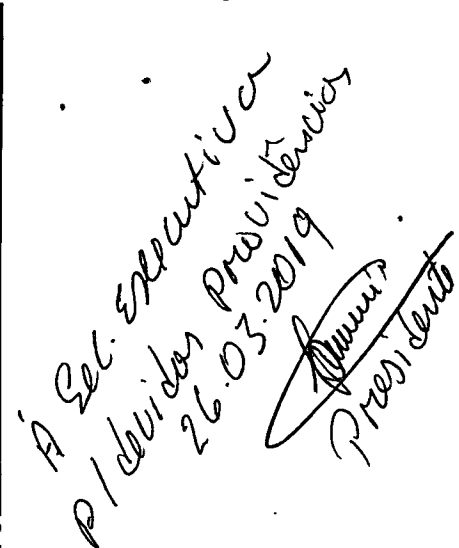 À Sec. Executiva
p/ devidas providências
26.03.2019
Presidente